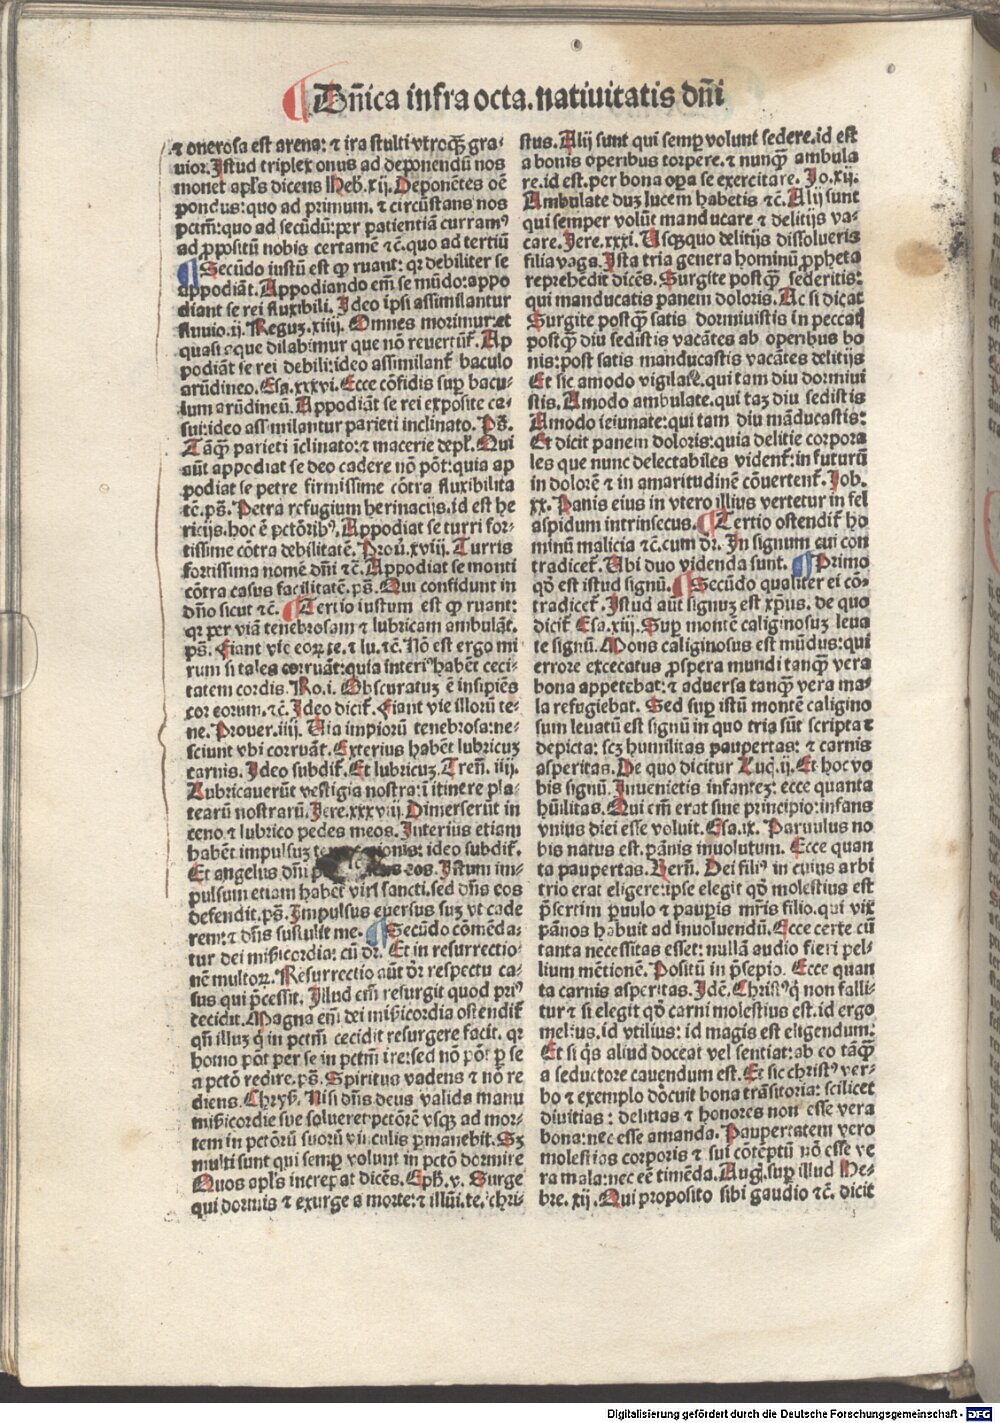 ¶ Dñica infra octa. natiuitatis dñi
⁊ onerosa est arena: ⁊ ira stulti vtroqȝ gra-
uior. Istud triplex onus ad deponendū nos
monet apl's dicens Heb. xij. Deponētes oē
pondus: quo ad primum. ⁊ circūstans nos
pctm̄: quo ad secūdū: per patientiā curramꝰ
ad ꝓpositū nobis certamē ⁊c̄. quo ad tertiū
¶ Secūdo iustū est ꝙ ruant: qꝛ debiliter se
appodiāt. Appodiando em̄ se mūdo: appo
diant se rei fluxibili. Ideo ipsi assimilantur
fluuio. ij. Reguȝ. xiiij. Omnes morimur: et
quasi aque dilabimur que nō reuertunt̄. Ap
podiāt se rei debili: ideo assimilant̄ baculo
arūdineo. Esa. xxxvi. Ecce cōfidis sup bacu-
lum arūdineū. Appodiāt se rei exposite ca-
sui: ideo assimilantur parieti inclinato. Ps̄.
Tāqȝ parieti īclinato: ⁊ macerie depl̄. Qui
aūt appodiat se deo cadere nō pōt: quia ap
podiat se petre firmissime cōtra fluxibilita
tē. ps̄. Petra refugium herinacijs. id est he
ricijs. hoc ē pctōribꝰ. Appodiat se turri for-
tissime cōtra debilitatē. Prou̇. xviij. Turris
fortissima nomē dn̄i ⁊c̄. Appodiat se monti
cōtra casus facilitatē. ps̄. Qui confidunt in
dn̄o sicut ⁊c̄. ¶ Tertio iustum est ꝙ ruant:
qꝛ per viā tenebrosam ⁊ lubricam ambulāt.
ps̄. Fiant vie eoꝝ te. ⁊ lu. ⁊c̄. Nō est ergo mi
rum si tales corruāt: quia interiꝰ habēt ceci-
tatem cordis. Ro. i. Obscuratuȝ ē insipiēs
cor eorum. ⁊c̄. Ideo dicit̄. Fiant vie illorū te-
ne. Prouer. iiij. Via impiorū tenebrosa: ne-
sciunt vbi corruāt. Exterius habēt lubricuȝ
carnis. Ideo subdit̄. Et lubricuȝ. Tren̄. iiij.
Lubricauerūt vestigia nostra: ī itinere pla-
tearū nostrarū. Jere. xxxviij. Dimerserūt in
ceno. ⁊ lubrico pedes meos. Interius etiam
habēt impulsuȝ ideo subdit̄.
Et angelus dn̄i eos. Istum im-
pulsum etiam habēt viri sancti. sed dn̄s eos
defendit. ps̄. Impulsus euersus suȝ vt cade
rem: ⁊ dn̄s suscepit me. ¶ Secūdo cōmēda-
tur dei misericordia: cū dr̄. Et in resurrectio-
nē multoꝝ. Resurrectio aūt dr̄ respectu ca-
sus qui p̄cessit. Illud em̄ resurgit quod priꝰ
cecidit. Magna em̄ dei mis̄icordia ostendit̄
qn̄ illuȝ q̇ in pctm̄ cecidit resurgere facit. qꝛ
homo pōt per se in pctm̄ ire: sed nō pōt ꝑ se
a pctō redire. ps̄. Spiritus vadens ⁊ nō re
diens. Chryṡ. Nisi dn̄s deus valida manu
mis̄icordie sue solueret pctōrē vsqȝ ad mor-
tem in pctōrū suorū vinculis ꝑmanebit. Sȝ
multi sunt qui semꝑ volunt in pctō dormire
Quos apl's increpat dicēs. Eph̄. v. Surge
qui dormis ⁊ exurge a morte: ⁊ illūi. te. chri-
stus. Alij sunt qui semꝑ volunt sedere. id est
a bonis operibus torpere. ⁊ nunqȝ ambula
re. id est. per bona oꝑa se exercitare. Jo. xij.
Ambulate duȝ lucem habetis ⁊c̄. Alij sunt
qui semper volūt manducare ⁊ delitijs va-
care. Jere. xxxi. Vsqȝquo delitijs dissolueris
filia vaga. Ista tria genera hominū ꝓpheta
reprehēdit dicēs. Surgite postqȝ sederitis:
qui manducatis panem doloris. Ac si dicat
Surgite postqȝ satis dormiuistis in peccatis
postqȝ diu sedistis vacātes ab operibus bo
nis: post satis manducastis vacātes delitijs
Et sic amodo vigilate. qui tam diu dormiui
stis. Amodo ambulate. qui taȝ diu sedistis
Amodo ieiunate: qui tam diu māducastis:
Et dicit panem doloris: quia delitie corpora
les que nunc delectabiles vident̄: in futurū
in dolorē ⁊ in amaritudinē cōuertent̄. Job.
xx. Panis eius in vtero illius vertetur in fel
aspidum intrinsecus. ¶ Tertio ostendit̄ ho
minū malicia ⁊c̄. cum dr̄. In signum cui con
tradicet̄. Vbi duo videnda sunt. ¶ Primo
qd̄ est istud signū. ¶ Secūdo qualiter ei cō-
tradicet̄. Istud aūt signuȝ est xp̄us. de quo
dicit̄ Esa. xiij. Suꝑ montē caliginosuȝ leua
te signū. Mons caliginosus est mūdus: qui
errore excecatus ꝓspera mundi tanqȝ vera
bona appetebat: ⁊ aduersa tanqȝ vera ma-
la refugiebat. Sed suꝑ istū montē caligino
sum leuatū est signū in quo tria sūt scripta ⁊
depicta: scȝ humilitas paupertas: ⁊ carnis
asperitas. De quo dicitur Luc̄. ij. Et hoc vo
bis signū. Inuenietis infanteȝ: ecce quanta
hūilitas. Qui em̄ erat sine principio: infans
vnius diei esse voluit. Esa. ix. Paruulus no
bis natus est. pānis inuolutum. Ecce quan
ta paupertas. Bern̄. Dei filiꝰ in cuius arbi
trio erat eligere: ipse elegit qd̄ molestius est
p̄sertim ꝑuulo ⁊ pauꝑis mr̄is filio. qui vix
pānos habuit ad inuoluendū. Ecce certe cū
tanta necessitas esset: nullā audio fieri pel-
lium mētionē. Positū in p̄sepio. Ecce quan
ta carnis asperitas. Idē. Christꝰ q̇ non falli
tur ⁊ si elegit qd̄ carni molestius est. id ergo
melius. id vtilius: id magis est eligendum.
Et si q̇s aliud doceat vel sentiat: ab eo tāqȝ
a seductore cauendum est. Et sic christꝰ ver-
bo ⁊ exemplo docuit bona trāsitoria: scilicet
diuitias: delitias ⁊ honores non esse vera
bona: nec esse amanda. Paupertatem vero
molestias corporis ⁊ sui cōtēptū nō esse ve
ra mala: nec eē timēda. Aug̈. suꝑ illud He-
bre. xij. Qui proposito sibi gaudio ⁊c̄. dicit
Digitalisierung gefördert durch die Deutsche Forschungsgemeinschaft - DFG